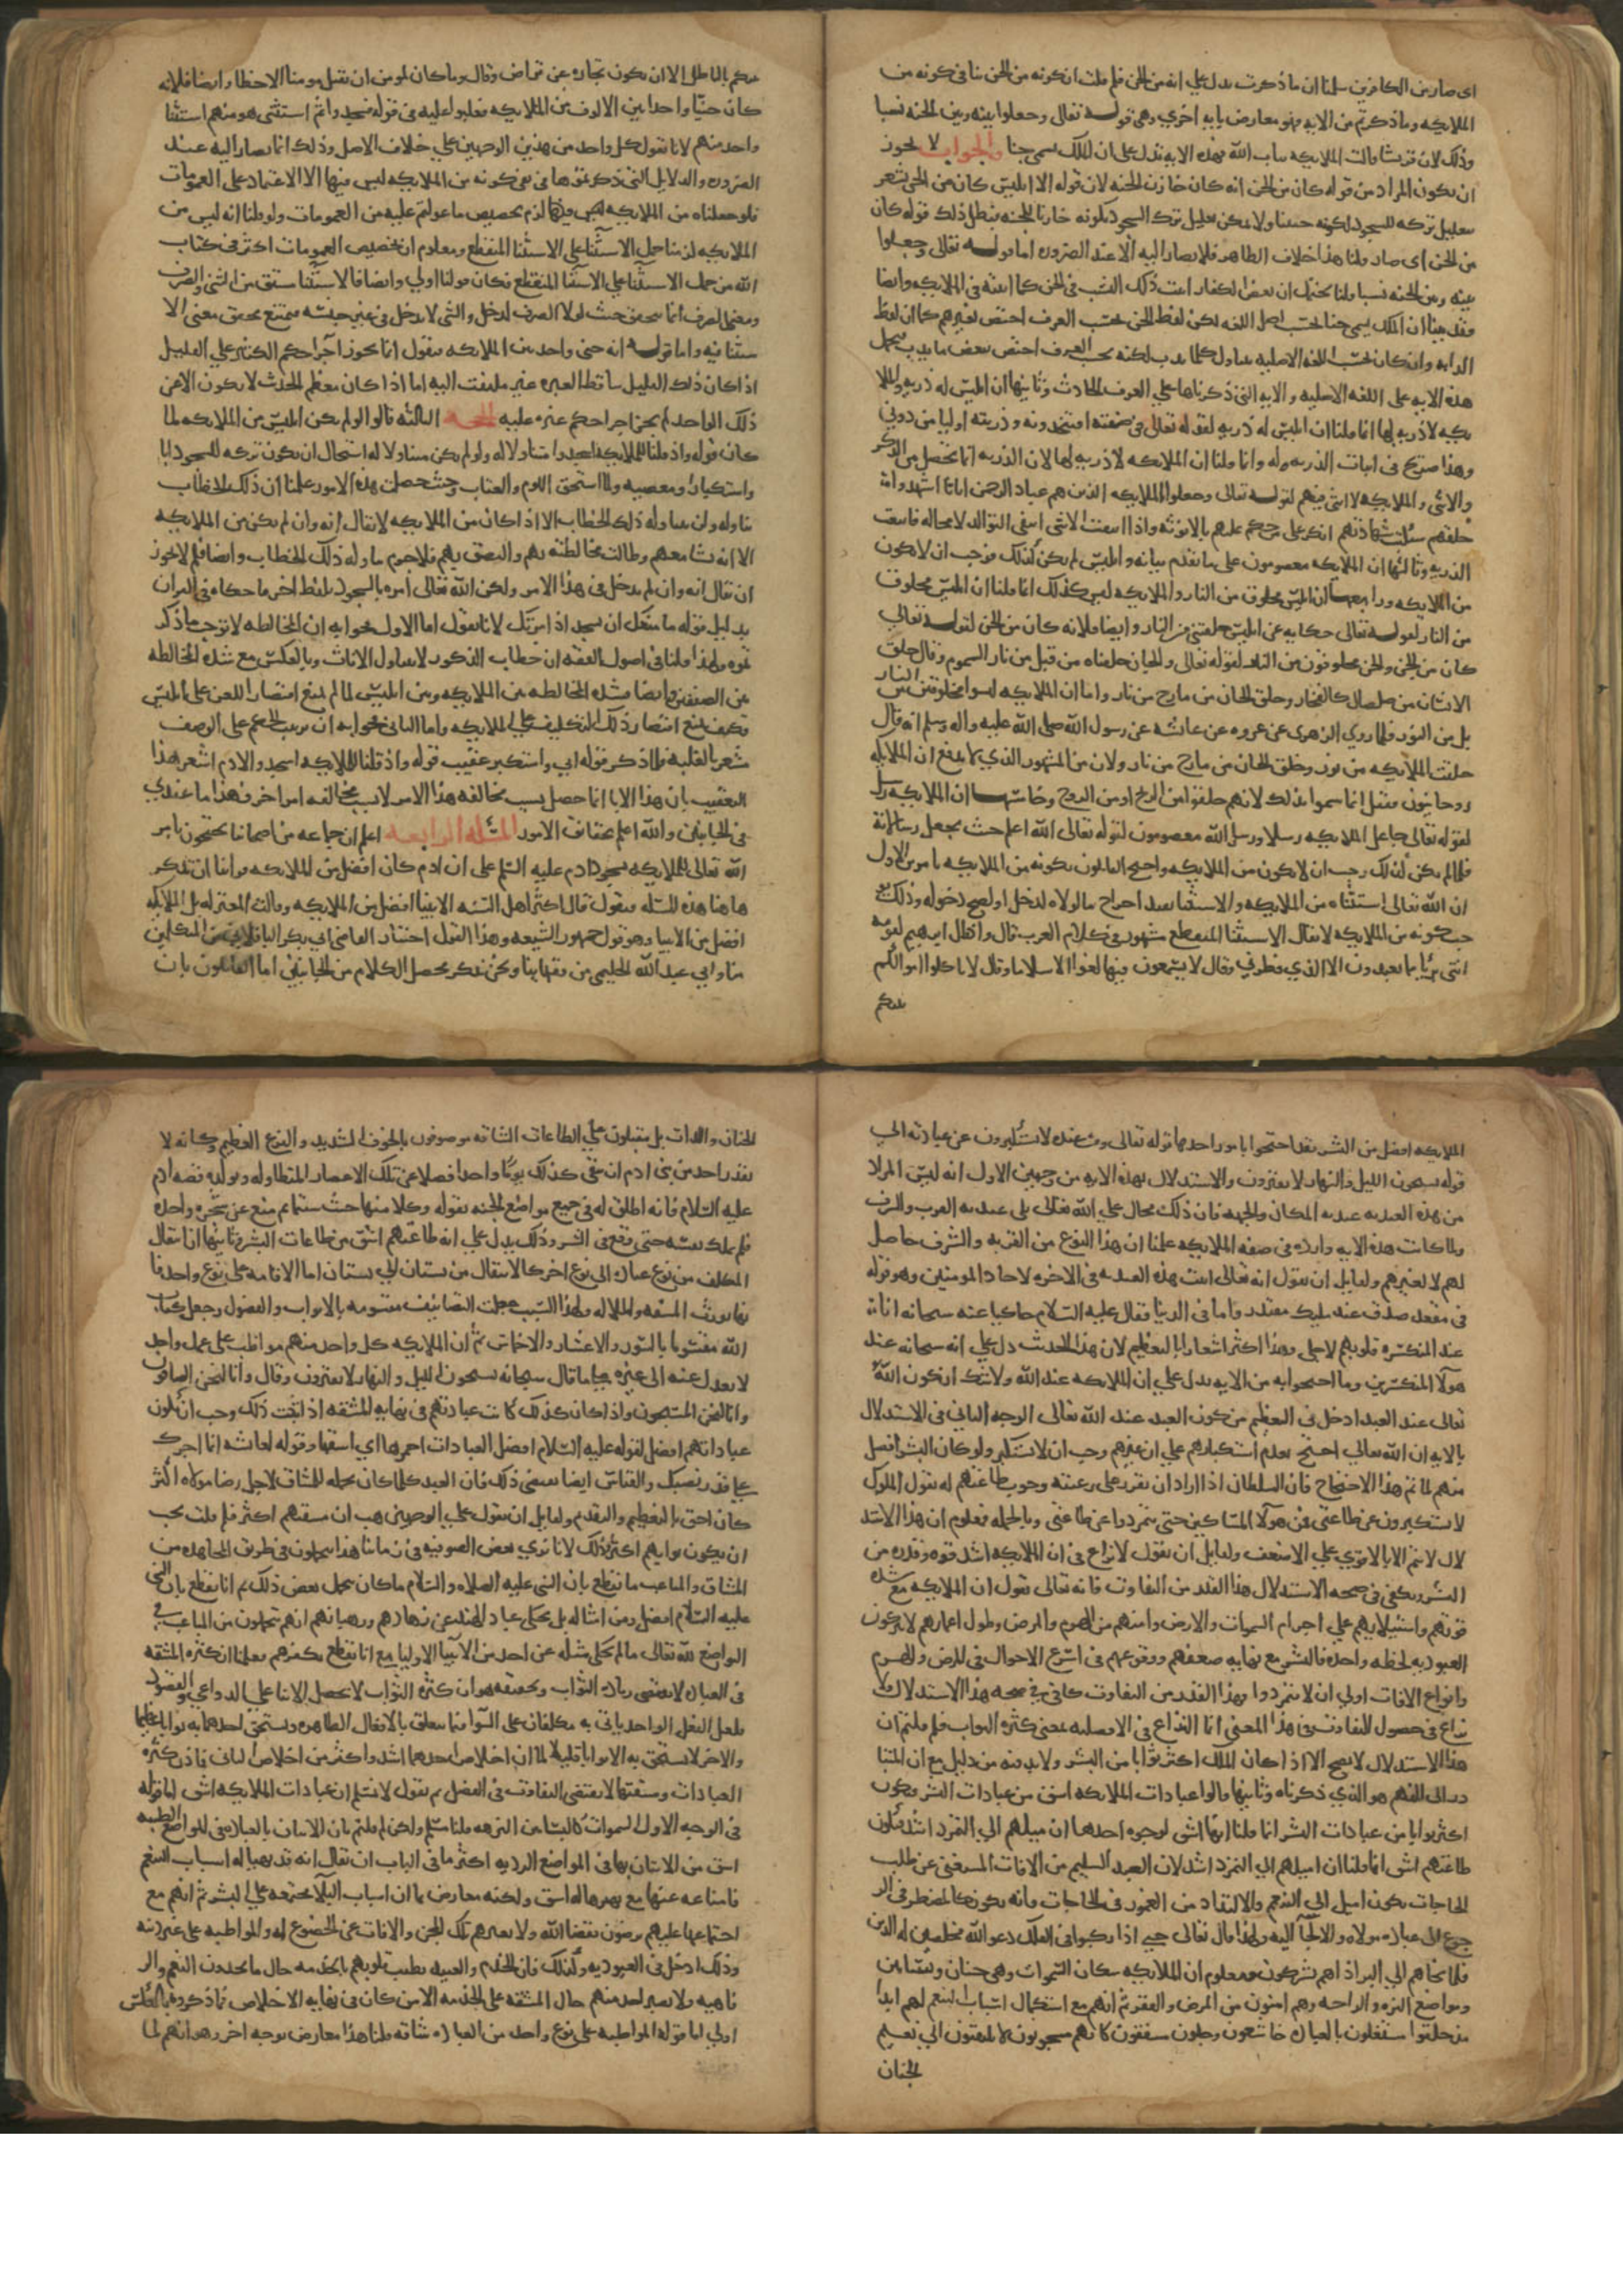 اى صار من الكافرين سلمنا ان ما ذكرت يدل على انه من الجن فلم قلت ان كونه من الجن ينافى كونه من
الملايكه وما ذكرتم من الايه فهو معارض بايه اخرى وهى قوله تعالى وجعلوا بينه وبين الجنه نسبا
وذلك لان قريشا قالت الملايكه بنات الله فهذه الايه تدل على ان الملك يسمى جنا والجواب لا يجوز
ان يكون المراد من قوله كان من الجن انه كان خازن الجنه لان قوله الا ابليس كان من الجن يشعر
بتعليل تركه للسجود لكونه جنيا ولا يمكن تعليل ترك السجود بكونه خازنا للجنه فبطل ذلك قوله كان
من الجن اى صار قلنا هذا خلاف الظاهر فلا يصار اليه الا عند الضروره اما قوله تعالى وجعلوا
بينه وبين الجنه نسبا قلنا يحتمل ان بعض الكفار اثبت ذلك النسب فى الجن كما اثبته فى الملايكه وايضا
فقد بينا ان الملك يسمى جنا بحسب اصل اللغه لكن لفظ الجن بحسب العرف اختص بغيرهم كما ان لفظ
الدابه وان كان بحسب اللغه الاصليه يتناول كل ما يدب لكنه بحسب العرف اختص ببعض ما يدب فيحمل
هذه الايه على اللغه الاصليه والايه التى ذكرناها على العرف الحادث وثانيها ان ابليس له ذريه والملا
يكه لا ذريه لها انما قلنا ان ابليس له ذريه لقوله تعالى فى صفته افتتخذونه وذريته اوليا من دونى
وهذا صريح فى اثبات الذريه له وانما قلنا ان الملايكه لا ذريه لها لان الذريه انما تحصل من الذكر
والانثى والملايكه لا انثى فيهم لقوله تعالى وجعلوا الملايكه الذين هم عباد الرحمن اناثا اشهدوا
خلقهم ستكتب شهادتهم انكر على من حكم عليهم بالانوثه واذا انتفت الانثى انتفى التوالد لا محاله فانتفت
الذريه وثالثها ان الملايكه معصومون على ما تقدم بيانه وابليس لم يكن كذلك فوجب ان لا يكون
من الملايكه ورابعها ان ابليس مخلوق من النار والملايكه ليس كذلك انما قلنا ان ابليس مخلوق
من النار لقوله تعالى حكايه عن ابليس خلقتنى من النار وايضا فلانه كان من الجن لقوله تعالى
كان من الجن والجن مخلوقون من النار لقوله تعالى والجان خلقناه من قبل من نار السموم وقال خلق
الانسان من صلصال كالفخار وخلق الجان من مارج من نار واما ان الملايكه ليسوا مخلوقين من النار
بل من النور فلما روى الزهرى عن عروه عن عائشه عن رسول الله صلى الله عليه واله وسلم انه قال
خلقت الملايكه من نور وخلق الجان من مارج من نار ولان من المشهور الذى لا يدفع ان الملايكه
روحانيون فقيل انما سموا بذلك لانهم خلقوا من الريح او من الروح وخامسها ان الملايكه رسل
لقوله تعالى جاعل الملايكه رسلا ورسل الله معصومون لقوله تعالى الله اعلم حيث يجعل رسالاته
فلما لم يكن كذلك وجب ان لا يكون من الملايكه واحتج القائلون بكونه من الملايكه بامرين الاول
ان الله تعالى استثناه من الملايكه والاستثنا يفيد اخراج ما لولاه لدخل او لصح دخوله وذلك
يوجب كونه من الملايكه لا يقال الاستثنا المنقطع مشهور فى كلام العرب قال واذ قال ابرهيم لقومه
اننى برئا مما تعبدون الا الذى فطرنى وقال لا يسمعون فيها لغوا الا سلاما وقال لا تاكلوا اموالكم
بينكم
بينكم بالباطل الا ان تكون تجاره عن تراض وقال وما كان لمومن ان يقتل مومنا الا خطا وايضا فلانه
كان جنيا واحدا بين الالوف من الملايكه فغلبوا عليه فى قوله فسجدوا ثم استثنى هو منهم استثنا
واحد منهم لانا نقول كل واحد من هذين الوجهين على خلاف الاصل وذلك انما يصار اليه عند
الضروره والدلايل التى ذكرتموها فى نفى كونه من الملايكه ليس فيها الا الاعتماد على العمومات
فلو جعلناه من الملايكه لزم تخصيص ما عولتم عليه من العمومات ولو قلنا انه ليس من
الملايكه لزمنا حمل الاستثنا على الاستثنا المنقطع ومعلوم ان تخصيص العمومات اكثر فى كتاب
الله من حمل الاستثنا على الاستثنا المنقطع فكان قولنا اولى وايضا فالاستثنا مشتق من الثنى والصرف
ومعنى الصرف انما يتحقق حيث لولا الصرف لدخل والشى لا يدخل فى غير جنسه فيمتنع تحقق معنى الا
ستثنا فيه واما قوله انه جنى واحد بين الملايكه فنقول انما يجوز اجرا حكم الكثير على القليل
اذا كان ذلك القليل ساقط العبره غير ملتفت اليه اما اذا كان معظم الحديث لا يكون الا عن
ذلك الواحد لم يجز اجرا حكم غيره عليه الحجه الثانيه قالوا لو لم يكن ابليس من الملايكه لما
كان قوله واذ قلنا للملايكه اسجدوا متناولا له ولو لم يكن متناولا له لاستحال ان يكون تركه للسجود ابا
واستكبارا ومعصيه ولما استحق اللوم والعتاب وحيث حصلت هذه الامور علمنا ان ذلك الخطاب
يتناوله ولن يتناوله ذلك الخطاب الا اذا كان من الملايكه لا يقال انه وان لم يكن من الملايكه
الا انه نشا معهم وطالت مخالطته بهم والتصق بهم فلا جرم تناوله ذلك الخطاب وايضا فلم لا يجوز
ان يقال انه وان لم يدخل فى هذا الامر ولكن الله تعالى امره بالسجود بلفظ اخر ما حكاه فى القران
بدليل قوله ما منعك ان تسجد اذ امرتك لانا نقول اما الاول فجوابه ان المخالطه لا توجب ما ذكر
تموه ولهذا قلنا فى اصول الفقه ان خطاب الذكور لا يتناول الاناث وبالعكس مع شده المخالطه
بين الصنفين وايضا فشده المخالطه بين الملايكه وبين ابليس لما لم تمنع اقتصار اللعن على ابليس
فكيف تمنع اقتصار ذلك التكليف على الملايكه واما الثانى فجوابه ان ترتيب الحكم على الوصف
مشعر بالعليه فلما ذكر قوله ابى واستكبر عقيب قوله واذ قلنا للملايكه اسجدوا لادم اشعر هذا
التعقيب بان هذا الابا انما حصل بسبب مخالفه هذا الامر لا بسبب مخالفه امر اخر فهذا ما عندى
فى الجانبين والله اعلم بحقائق الامور المسئله الرابعه اعلم ان جماعه من اصحابنا يحتجون بامر
الله تعالى للملايكه بسجود ادم عليه السلم على ان ادم كان افضل من الملايكه فراينا ان نذكر
هاهنا هذه المسئله فنقول قال اكثر اهل السنه الانبيا افضل من الملايكه وقالت المعتزله بل الملايكه
افضل من الانبيا وهو قول جمهور الشيعه وهذا القول اختيار القاضى ابى بكر الباقلانى من المتكلمين
منا وابى عبد الله الحليمى من فقهاينا ونحن نذكر محصل الكلام من الجانبين اما القائلون بان
الملايكه افضل من البشر فقد احتجوا بامور احدها قوله تعالى ومن عنده لا يستكبرون عن عبادته الى
قوله يسبحون الليل والنهار لا يفترون والاستدلال بهذه الايه من وجهين الاول انه ليس المراد
من هذه العنديه عنديه المكان والجهه فان ذلك محال على الله تعالى بل عنديه القرب والشرف
ولما كانت هذه الايه وارده فى صفه الملايكه علمنا ان هذا النوع من القربه والشرف حاصل
لهم لا لغيرهم ولقايل ان يقول انه تعالى اثبت هذه العنديه فى الاخره لاحاد المومنين وهو قوله
فى مقعد صدق عند مليك مقتدر واما فى الدنيا فقال عليه السلام حاكيا عنه سبحانه انا
عند المنكسره قلوبهم لاجلى وهذا اكثر اشعارا بالتعظيم لان هذا الحديث دل على انه سبحانه عند
هولا المنكسرين وما احتجوا به من الايه يدل على ان الملايكه عند الله ولا شك ان كون الله
تعالى عند العبد ادخل فى التعظيم من كون العبد عند الله تعالى الوجه الثانى فى الاستدلال
بالايه ان الله تعالى احتج بعدم استكبارهم على ان غيرهم وجب ان لا يستكبر ولو كان البشر افضل
منهم لما تم هذا الاحتجاج فان السلطان اذا اراد ان يقرر على رعيته وجوب طاعتهم له يقول الملوك
لا يستكبرون عن طاعتى فمن هولا المساكين حتى يتمردوا عن طاعتى وبالجمله فمعلوم ان هذا الاستد
لال لا يتم الا بالاقوى على الاضعف ولقايل ان يقول لا نزاع فى ان الملايكه اشد قوه وقدره من
البشر ويكفى فى صحه الاستدلال هذا القدر من التفاوت فانه تعالى يقول ان الملايكه مع شده
قوتهم واستيلايهم على اجرام السموات والارض وامنهم من الهرم والمرض وطول اعمارهم لا يتركون
العبوديه لحظه واحده فالبشر مع نهايه ضعفهم ووقوعهم فى اسرع الاحوال فى المرض والهرم
وانواع الافات اولى ان لا يتمردوا فهذا القدر من التفاوت كاف فى صحه هذا الاستدلال ولا
نزاع فى حصول التفاوت فى هذا المعنى انما النزاع فى الافضليه بمعنى كثره الثواب فلم قلتم ان
هذا الاستدلال لا يصح الا اذا كان الملك اكثر ثوابا من البشر ولا بد فيه من دليل مع ان المتبا
در الى الفهم هو الذى ذكرناه وثانيها قالوا عبادات الملايكه اشق من عبادات البشر فيكون
اكثر ثوابا من عبادات البشر انما قلنا انها اشق لوجوه احدها ان ميلهم الى التمرد اشد فتكون
طاعتهم اشق انما قلنا ان ميلهم الى التمرد اشد لان العبد السليم من الافات المستغنى عن طلب
الحاجات يكون اميل الى التنعم والالتذاذ من المغمور فى الحاجات فانه يكون كالمضطر فى الر
جوع الى عباده مولاه والالتجآ اليه ولهذا قال تعالى حتى اذا ركبوا فى الفلك دعوا الله مخلصين له الدين
فلما نجاهم الى البر اذا هم يشركون ومعلوم ان الملايكه سكان السموات وهى جنان وبساتين
ومواضع التنزه والراحه وهم امنون من المرض والفقر ثم انهم مع استكمال اسباب التنعم لهم ابدا
مذ خلقوا مشتغلون بالعباده خاشعون وجلون مشفقون كانهم مسجونون لا يلتفتون الى نعيم
الجنان
الجنان واللذات بل يقبلون على الطاعات الشاقه موصوفون بالخوف الشديد والفزع العظيم وكانه لا
يقدر احد من بنى ادم ان يبقى كذلك يوما واحدا فضلا عن تلك الاعصار المتطاوله ويويده قصه ادم
عليه السلام فانه اطلق له فى جميع مواضع الجنه بقوله وكلا منها حيث شئتما ثم منع عن شجره واحده
فلم يملك نفسه حتى وقع فى الشر وذلك يدل على انه طاعتهم اشق من طاعات البشر وثانيها ان انتقال
المكلف من نوع عباده الى نوع اخر كالانتقال من بستان الى بستان اما الاقامه على نوع واحد فا
نها تورث المشقه والملاله ولهذا السبب جعلت التصانيف مقسومه بالابواب والفصول وجعل كتاب
الله مقسوما بالسور والاعشار والاخماس ثم ان الملايكه كل واحد منهم مواظب على عمل واحد
لا يعدل عنه الى غيره على ما قال سبحانه يسبحون الليل والنهار لا يفترون وقال وانا لنحن الصافون
وانا لنحن المسبحون واذا كان كذلك كانت عبادتهم فى نهايه المشقه اذا ثبت ذلك وجب ان تكون
عباداتهم افضل لقوله عليه السلام افضل العبادات احمزها اى اشقها وقوله لعائشه انما اجرك
على قدر نصبك والقياس ايضا يقتضى ذلك فان العبد كلما كان تحمله للمشاق لاجل رضا مولاه اكثر
كان احق بالتعظيم والتقديم ولقايل ان يقول على الوجهين هب ان مشقتهم اكثر فلم قلت يجب
ان يكون ثوابهم اكثر وذلك لانا نرى بعض الصوفيه فى زماننا هذا يتحملون فى طريق المجاهده من
المشاق والمتاعب ما نقطع بان النبى عليه الصلاه والسلام ما كان يتحمل بعض ذلك ثم انا نقطع بان النبى
عليه السلام افضل من امثاله بل يحكى عن عباد الهند عن زهادهم ورهبانهم انهم يتحملون من المتاعب فى
التواضع لله تعالى ما لم يحكى مثله عن احد من الانبيا والاوليا مع انا نقطع بكفرهم فعلمنا ان كثره المشقه
فى العباده لا تقتضى زياده الثواب وتحقيقه هو ان كثره الثواب لا تحصل الا بنا على الدواعى والقصود
فلعل الفعل الواحد ياتى به مكلفان على السوا فيما يتعلق بالافعال الظاهره ويستحق احدهما به ثوابا عظيما
والاخر لا يستحق به الا ثوابا قليلا لما ان اخلاص احدهما اشد واكثر من اخلاص الثانى فاذن كثره
العبادات ومشقتها لا تقتضى التفاوت فى الفضل ثم نقول لا نسلم ان عبادات الملايكه اشق اما قوله
فى الوجه الاول السموات كالبساتين النزهه قلنا مسلم ولكن لم قلتم بان الاتيان بالعباده فى المواضع الطيبه
اشق من الاتيان بها فى المواضع الرديه اكثر ما فى الباب ان يقال انه قد يهيا له اسباب التنعم
فامتناعه عنها مع تهيوها له اشق ولكنه معارض بما ان اسباب البلا مجتمعه على البشر ثم انهم مع
اجتماعها عليهم يرضون بقضا الله ولا تغيرهم تلك المحن والافات عن الخضوع له والمواظبه على عبوديته
وذلك ادخل فى العبوديه وكذلك فان الخدم والعبيد تطيب قلوبهم بالخدمه حال ما يجدون النعم والر
فاهيه ولا يصبر احد منهم حال المشقه على الخدمه الا من كان فى نهايه الاخلاص فما ذكروه بالعكس
اولى اما قوله المواظبه على نوع واحد من العباده شاقه قلنا هذا معارض بوجه اخر وهو انهم لما